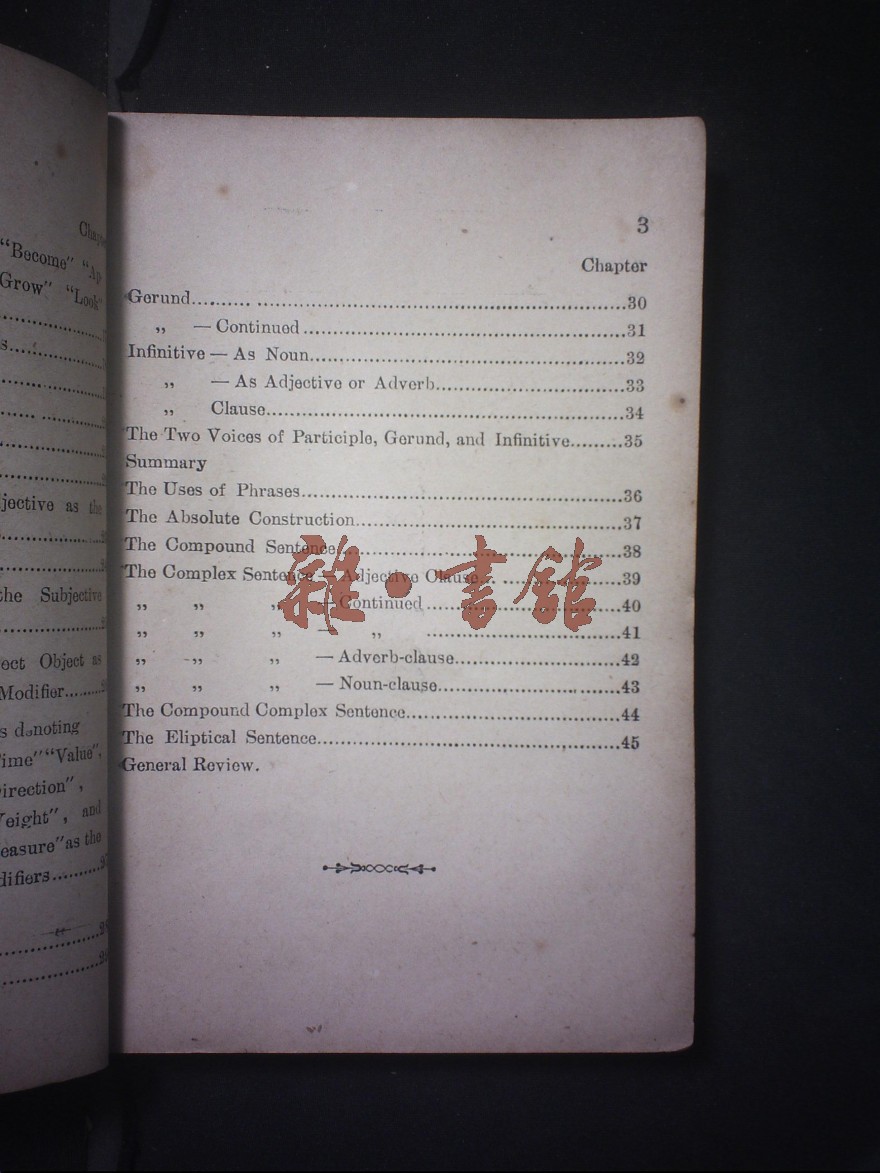 Chap
"Become" "Ap
Grow" "Look"
jective as the
the Subjective
ect Object as
Modifier
s denoting
ime" "Value",
irection",
eight", and
easure" as the
difiers
3
Chapter
Gerund.....30
„ — Continued.....31
Infinitive — As Noun.....32
„ — As Adjective or Adverb.....33
„ Clause.....34
The Two Voices of Participle, Gerund, and Infinitive.....35
Summary
The Uses of Phrases.....36
The Absolute Construction.....37
The Compound Sentence.....38
The Complex Sentence — Adjective Clause.....39
„ „ „ — Continued.....40
„ „ „ — „ .....41
„ „ „ — Adverb-clause.....42
„ „ „ — Noun-clause.....43
The Compound Complex Sentence.....44
The Eliptical Sentence.....45
General Review.
雜·書館